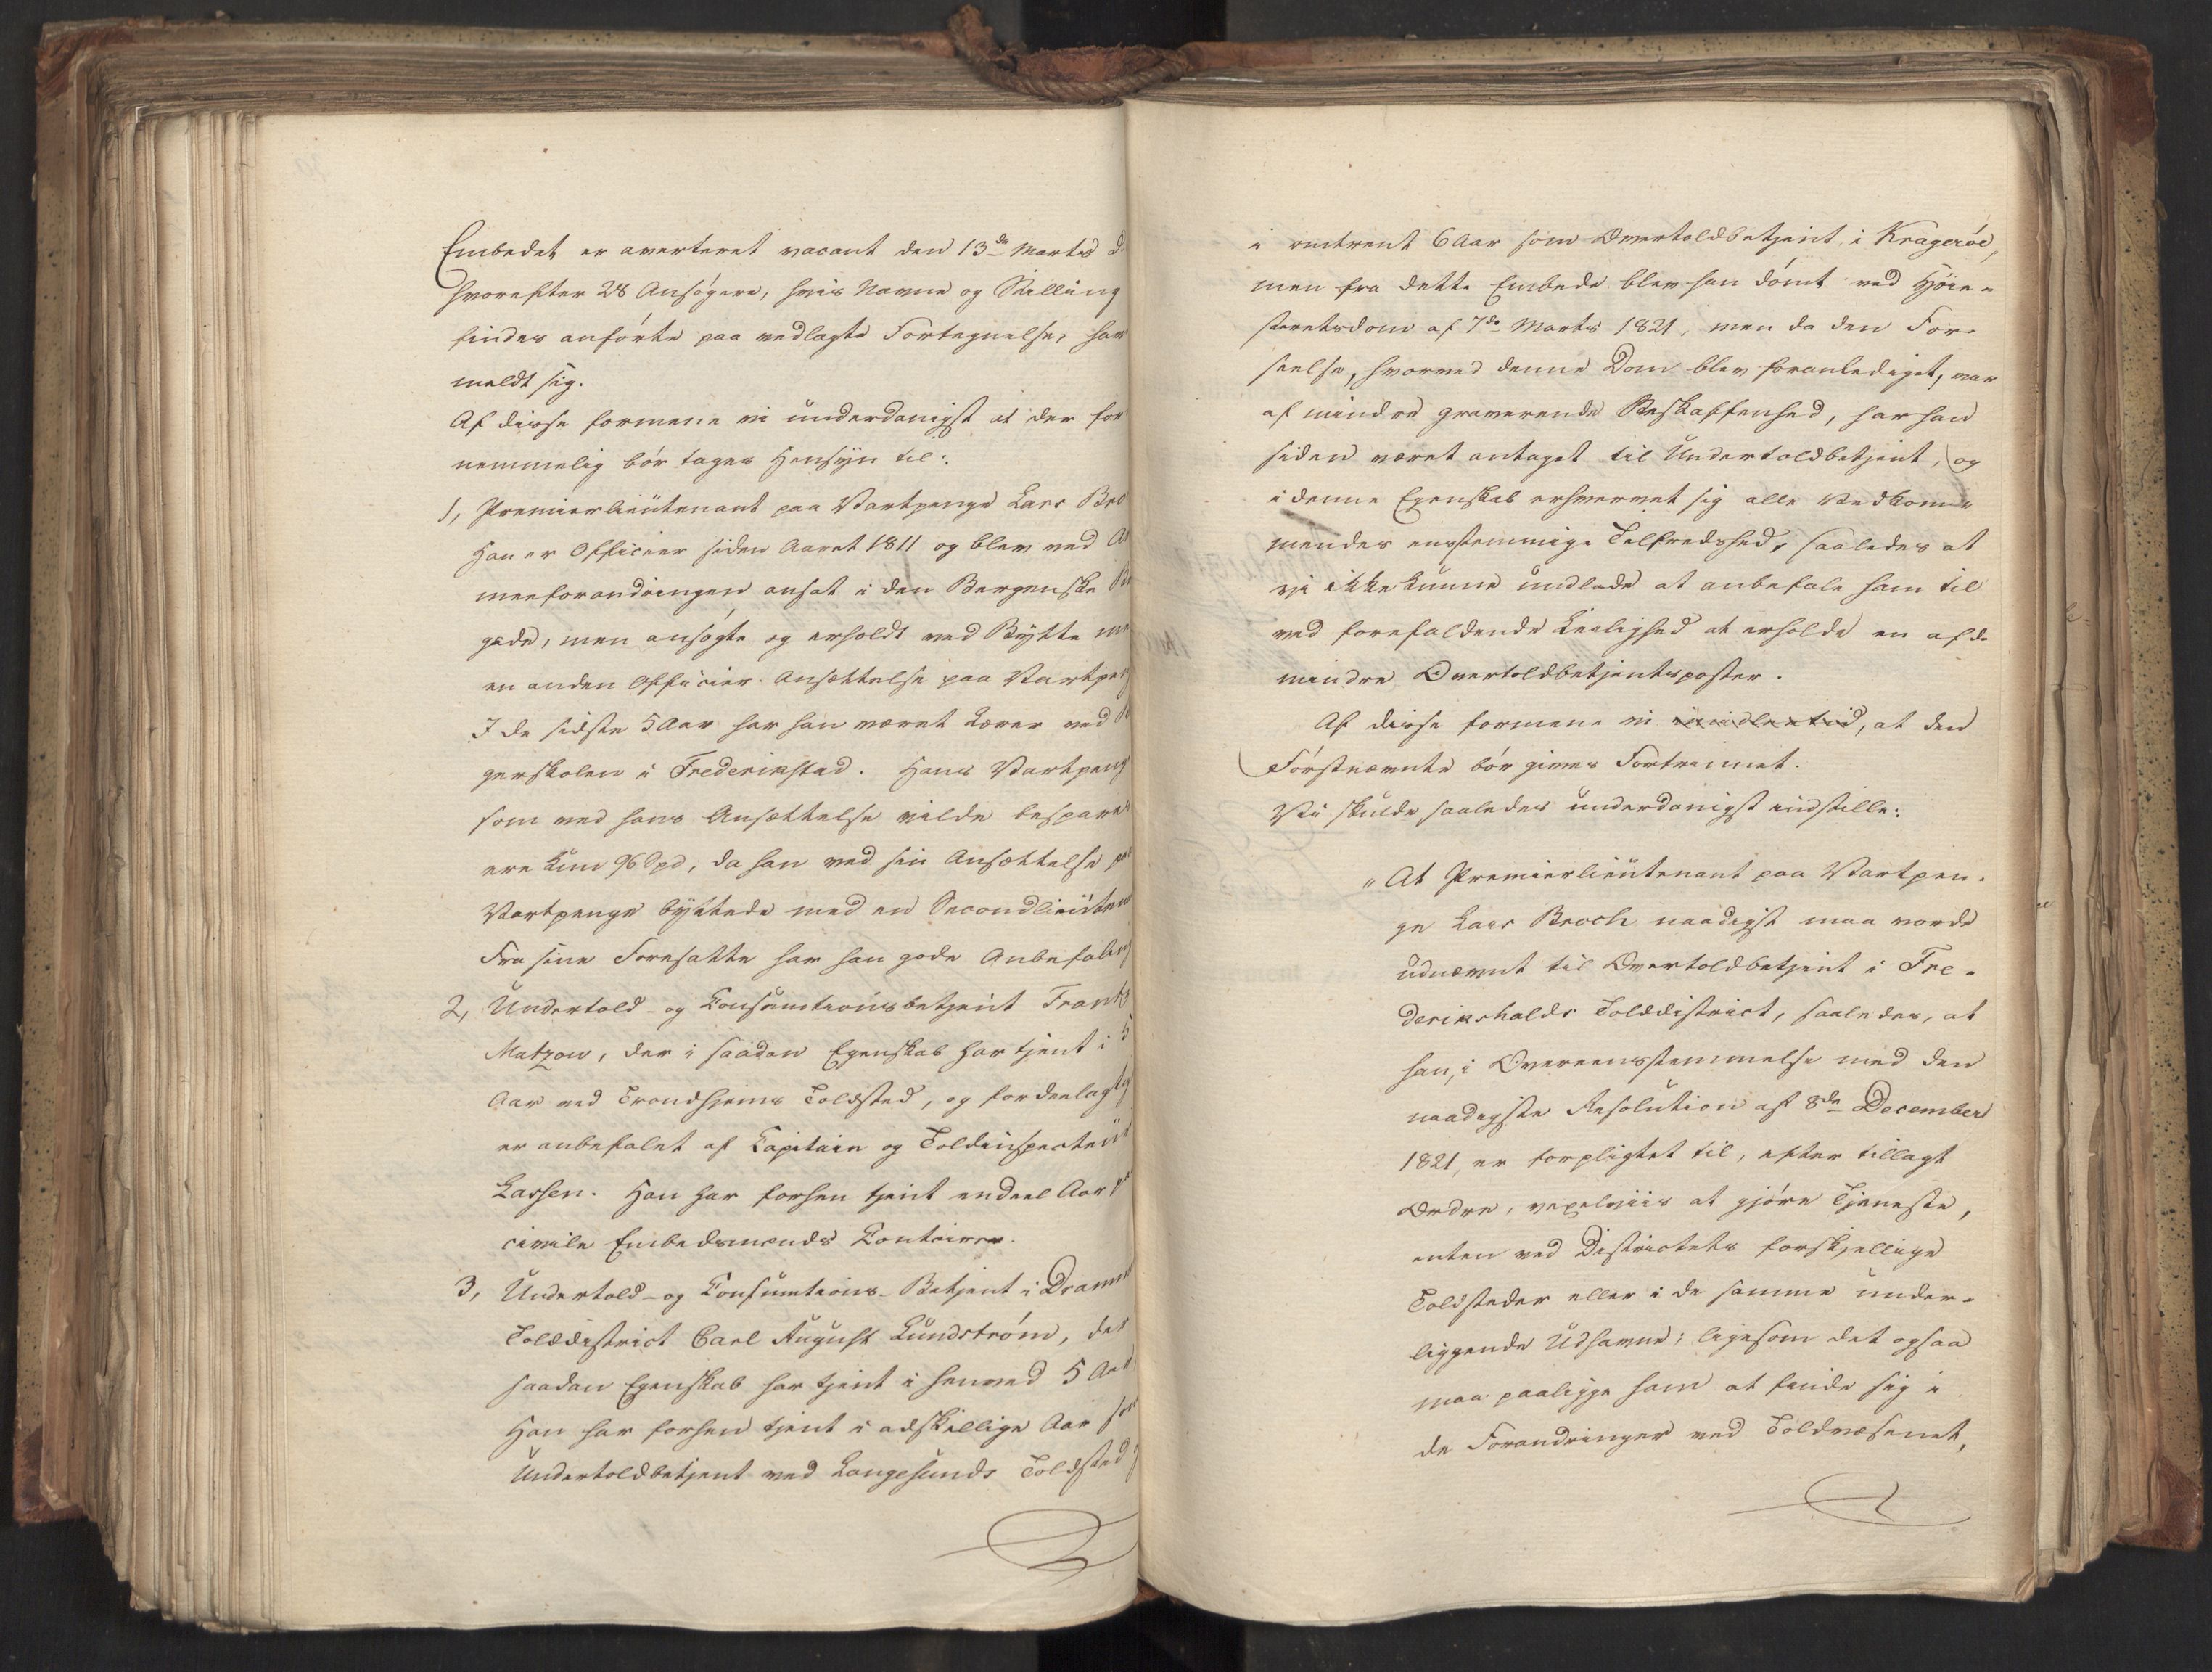 Embedet er averteret vacant den 13de Marts d.
hvorefter 28 Ansøgere, hvis Navne og Stilling
findes anførte paa vedlagte Fortegnelse, har
meldt sig.
Af disse formene vi underdanigst at der for
nemmelig bør tages Hensyn til:
1, Premierlieutenant paa Vartpenge Lars Bro
Han er Officier siden Aaret 1811 og blev ved Ar
meeforandringen ansat i den Bergenske Bri
gade, men ansøgte og erholdt ved Bytte med
en anden Officier Ansættelse paa Vartpeng
I de sidste 5 Aar har han været Lærer ved B
gerskolen i Frederikstad. Hans Vartpeng
som ved hans Ansættelse vilde bespares
ere kun 96 Spd, da han ved sin Ansættelse paa
Vartpenge byttede med en Secondlieuten
Fra sine Foresatte har han gode Anbefaling
2, Undertold- og Consumtionsbetjent Frantz
Matzow, der i saadan Egenskab har tjent i 5
Aar ved Trondhjems Toldsted, og fordeelagtig
er anbefalet af Capitain og Toldinspecteur
Lassen. Han har forhen tjent endeel Aar paa
civile Embedsmænds Contoirer.
3, Undertold- og Consumtions-Betjent i Dramm
Tolddistrict Carl August Lundstrøm, der
saadan Egenskab har tjent i henved 5 Aar
Han har forhen tjent i adskillige Aar som
Undertoldbetjent ved Langesunds Toldsted
i omtrent 6 Aar som Overtoldbetjent i Kragerøe,
men fra dette Embede blev han dømt ved Høie-
steretsdom af 7de Marts 1821, men da den For-
seelse, hvorved denne Dom blev foranlediget, var
af mindre graverende Beskaffenhed, har han
siden været antaget til Undertoldbetjent, og
i denne Egenskab erhvervet sig alle Vedkom-
mendes eenstemmige Tilfredshed, saaledes at
vi ikke kunne undlade at anbefale ham til
ved forefaldende Leilighed at erholde en af de
mindre Overtoldbetjentsposter.
Af disse formene vi imidlertid, at den
Førstnævnte bør gives Fortrinnet.
Vi skulde saaledes underdanigst indstille:
"At Premierlieutenant paa Vartpen-
ge Lars Broch naadigst maa vorde
udnævnt til Overtoldbetjent i Fre-
derikshalds Tolddistrict, saaledes, at
han, i Overeensstemmelse med den
naadigste Resolution af 8de December
1821, er forpligtet til, efter tillagt
Ordre, vexelviis at gjøre Tjeneste,
enten ved Districtets forskjellige
Toldsteder eller i de samme under-
liggende Udhavne; ligesom det ogsaa
maa paaligge ham at finde sig i
de Forandringer ved Toldvæsenet,